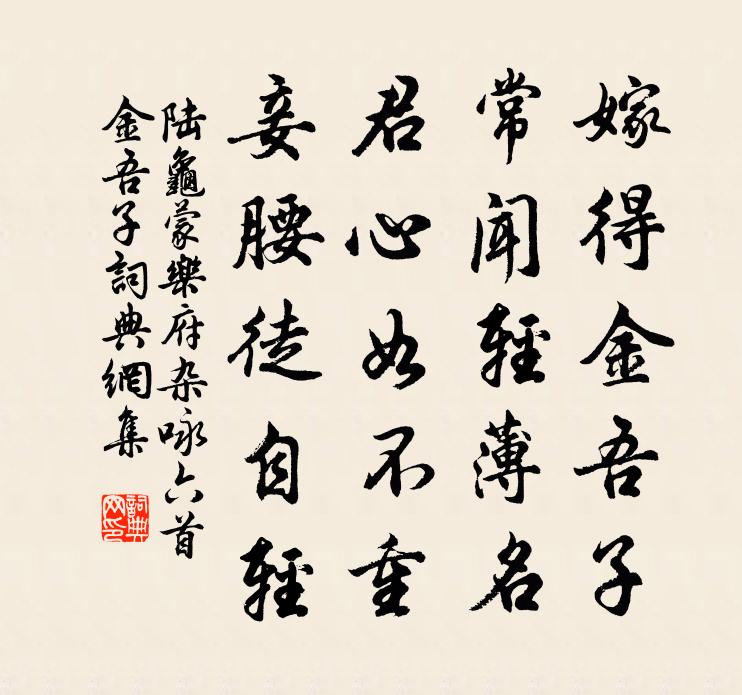 嫁得金吾子
常聞輕薄名
君心如不重
妾腰徒自輕
陆龜蒙樂府杂咏六首
金吾子詞典網集
詞典網印